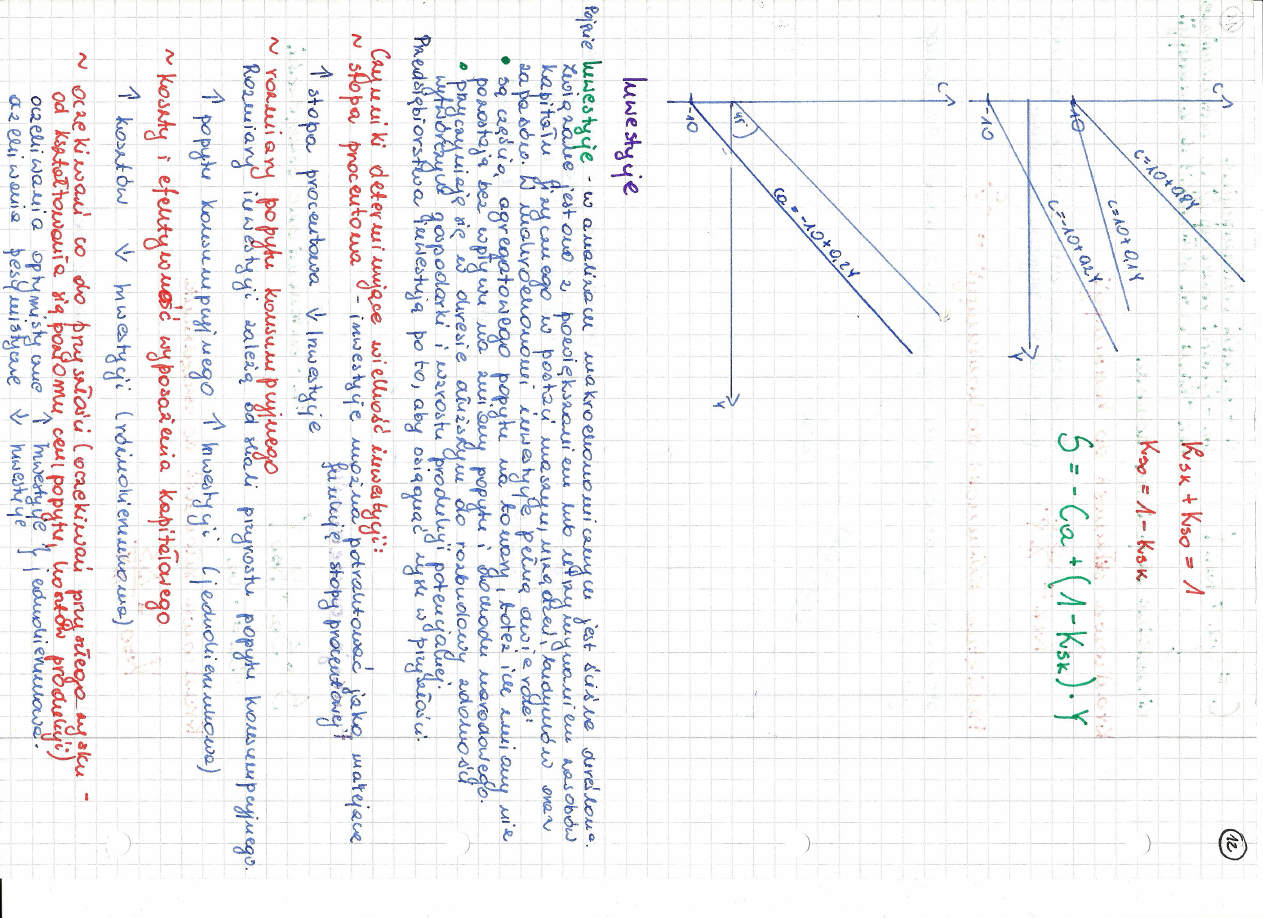 12
C
C=10+0,8Y
10
C=10+0,1Y
-10
C=-10+0,2Y
Y
Ksk + Kso = 1
Kso = 1 - Ksk
S = - Ca + (1 - Ksk) · Y
C
45°
-10
Ca = -10+0,2Y
Y
Inwestycje
Pojęcie Inwestycje - w analizach makroekonomicznych jest ściśle określona.
Związane jest ono z powiększaniem lub utrzymywaniem zasobów
kapitału fizycznego w postaci maszyn, urządzeń, budynków oraz
zapasów. W makroekonomii inwestycje pełnią dwie role:
• są częścią agregatowego popytu na towary, toteż ich zmiany nie
pozostają bez wpływu na zmiany popytu i dochodu narodowego.
• przyczyniają się w okresie dłuższym do rozbudowy zdolności
wytwórczych gospodarki i wzrostu produkcji potencjalnej.
Przedsiębiorstwa inwestują po to, aby osiągnąć zysk w przyszłości.
Czynniki determinujące wielkość inwestycji:
~ stopa procentowa - inwestycje można potraktować jako malejącą
funkcję stopy procentowej!
↑ stopa procentowa ↓ Inwestycje
~ rozmiary popytu konsumpcyjnego
Rozmiary inwestycji zależą od skali przyrostu popytu konsumpcyjnego.
↑ popytu konsumpcyjnego ↑ Inwestycji (jednokierunkowa)
~ koszty i efektywność wyposażenia kapitałowego
↑ kosztów ↓ Inwestycji (różnokierunkowa)
~ oczekiwań co do przyszłości (oczekiwań przyszłego zysku -
od kształtowania się poziomu cen, popytu, kosztów produkcji)
oczekiwania optymistyczne ↑ Inwestycje } jednokierunkowa.
oczekiwania pesymistyczne ↓ Inwestycje